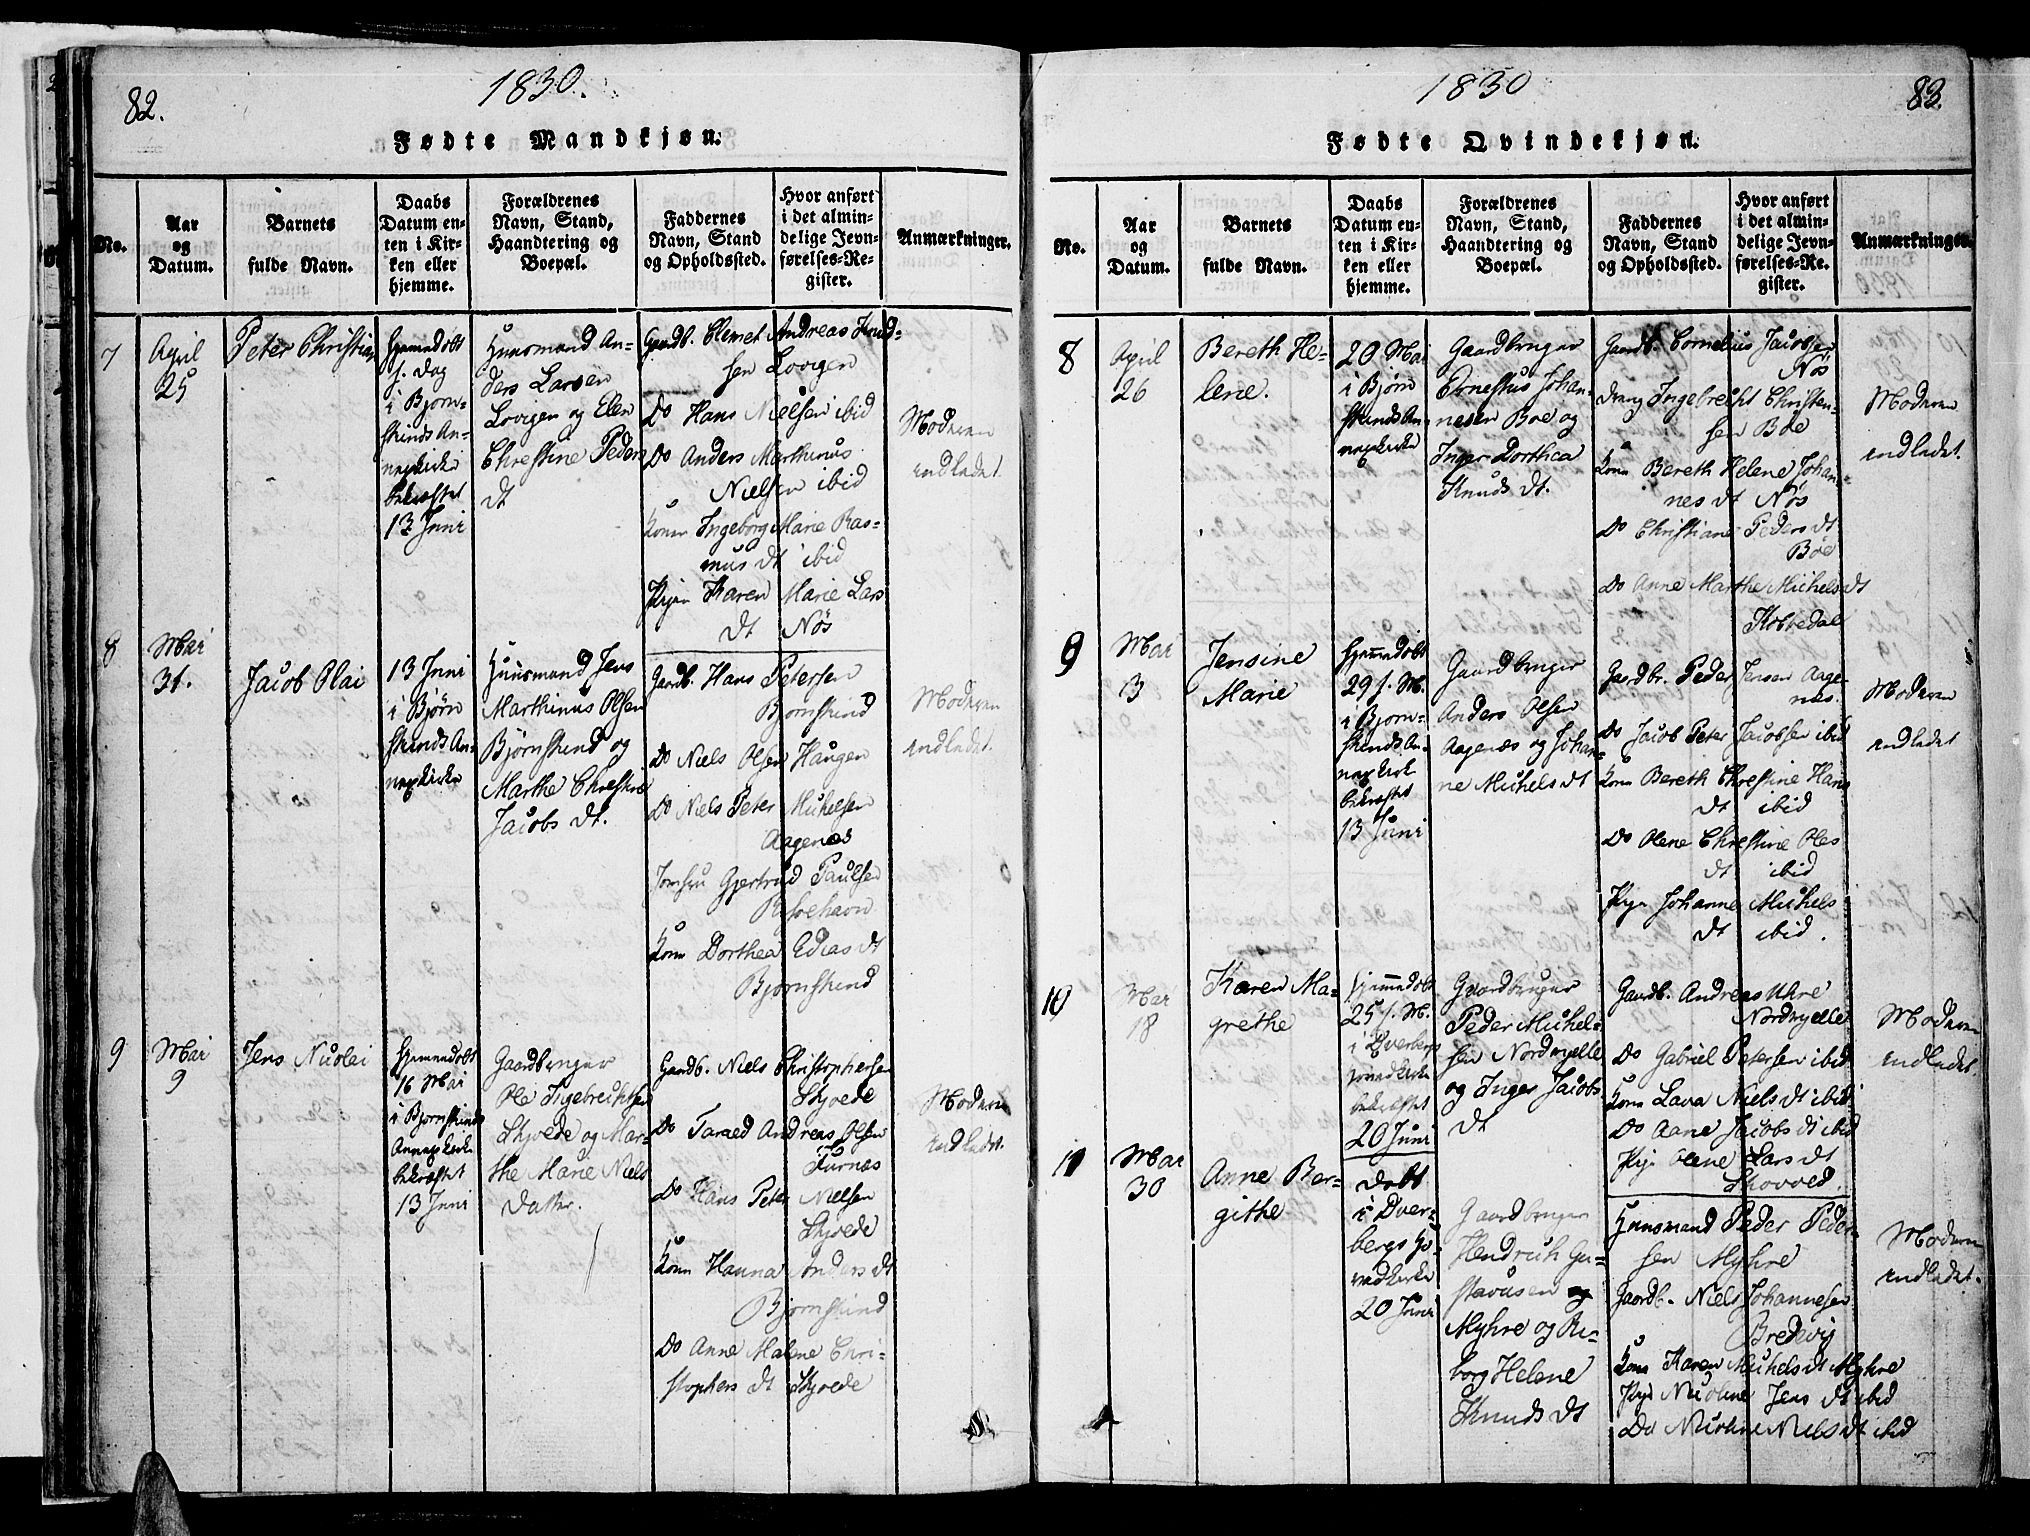 82.
1830.
Fødte Mandkjøn.
No.
Aar
og
Datum.
Barnets
fulde Navn.
Daabs
Datum en-
ten i Kir-
ken eller
hjemme.
Forældrenes
Navn, Stand,
Haandtering og
Boepæl.
Faddernes
Navn, Stand
og Opholdssted.
Hvor anført
i det almin-
delige Jevn-
førelses-Re-
gister.
Anmærkninger.
7
April
25
Peter Christian
Hjemedøbt
s. Dag
i Bjørn-
skinds An-
nexkirke
bekræftet
13 Juni
Huusmand An-
ders Larsen
Lovigen og Elen
Chrestine Peders
dt
Gaardb. Clemet Andreas Knud-
sen Lovigen
Do Hans Nielsen ibid
Do Anders Marthinus
Nielsen ibid
Kone Ingeborg Marie Ras-
mus dt ibid
Pige Karen Marie Lars
dt Nös
Moderen
indledet
8
Mai
31.
Jacob Olai
13 Juni
i Bjørn
skinds An-
nexkirke
Huusmand Jens
Marthinus Olsen
Bjørnskind og
Marthe Chrestine
Jacobs dt.
Gaardb. Hans Petersen
Bjørnskind
Do Niels Olsen Haugen
Do Niels Peter Michelsen
Aagenæs
Jomfru Gjertrud Paulsen
Risøehavn
Kone Dorthea Edias dt
Bjørnskind
Moderen
indledet.
9
Mai
9
Jens Nicolai
Hjemmedøbt
16 Mai
i Bjørnskinds
Annexkirke
bekræftet
13 Juni
Gaardbruger
Ole Ingebrechtsen
Skjvede og Mar-
the Marie Niels
Datter.
Gaardb. Niels Christophersen
Skjvede
Do Taraed Andreas Olsen
Furnæs
Do Hans Peter Nielsen
Skjvede
Kone Hanna Anders dt
Bjørnskind
Do Anne Malene Chri-
stophers dt Skjvede
Moderen
indledet.
1830
83.
Fødte Qvindekjøn.
No.
Aar
og
Datum.
Barnets
fulde Navn.
Daabs
Datum en-
ten i Kir-
ken eller
hjemme.
Forældrenes
Navn, Stand,
Haandtering og
Boepæl.
Faddernes
Navn, Stand
og Opholdssted.
Hvor anført
i det almin-
delige Jevn-
førelses-Re-
gister.
Anmærkninger.
8
April
26
Bereth He-
lene.
20 Mai
i Bjørn
skinds An-
nexkirke
Gaardbruger
Ernestus Johan-
nesen Boe og
Inger Dorthea
Knuds dt.
Gaardb. Cornelius Jacobsen
Nös
Dreng Ingebrecht Christen-
sen Böe
Kone Bereth Helene Johan-
nes dt Nös
Do Christiane Peders dt
Böe
Do Anne Marthe Michels dt
Kobbedal
Moderen
indledet.
9
Mai
13
Jensine
Marie
Hjemmedøbt
29 s. M.
i Bjørn-
skinds An-
nexkirk
bekræftet
13 Juni
Gaardbruger
Anders Olsen
Aagenæs og Johan-
ne Michels dt
Gaardbr. Peder Jensen Aage-
næs.
Do Jacob Peter Jacobsen ibid
Kone Bereth Chrestine Hans
dt ibid
Do Olene Chrestine Oles
dt ibid
Pige Johanne Michels
dt ibid.
Moderen
indledet
10
Mai
18
Karen Ma-
grethe
Hjemmedøbt
25 s. M.
i Dverbergs
Hovedkirke
bekræftet
20 Juni
Gaardbruger
Peder Michel-
sen Nordmyelle
og Inger Jacobs
dt
Gaardb. Andreas Uhre
Nordmyelle
Do Gabriel Petersen ibid
Kone Lava Niels dt ibid
Do Aane Jacobs dt ibid
Pige Olene Lars dt
Skovold.
Moderen
indledet.
11
Mai
30
Anne Ber-
githe
døbt
i Dver-
bergs Ho-
vedkirke
20 Juni
Gaardbruger
Hendrich Gu-
stavusen
Myhre og Ri-
borg Helene
Knuds dt
Huusmand Peder Peder-
sen Myhre
Gaardb. Niels Johannesen
Bredevig
Kone Karen Michels dt Myhre
Pige Nicoline Jens dt ibid
Do Nicoline Niels dt ibid
Moderen
indledet.